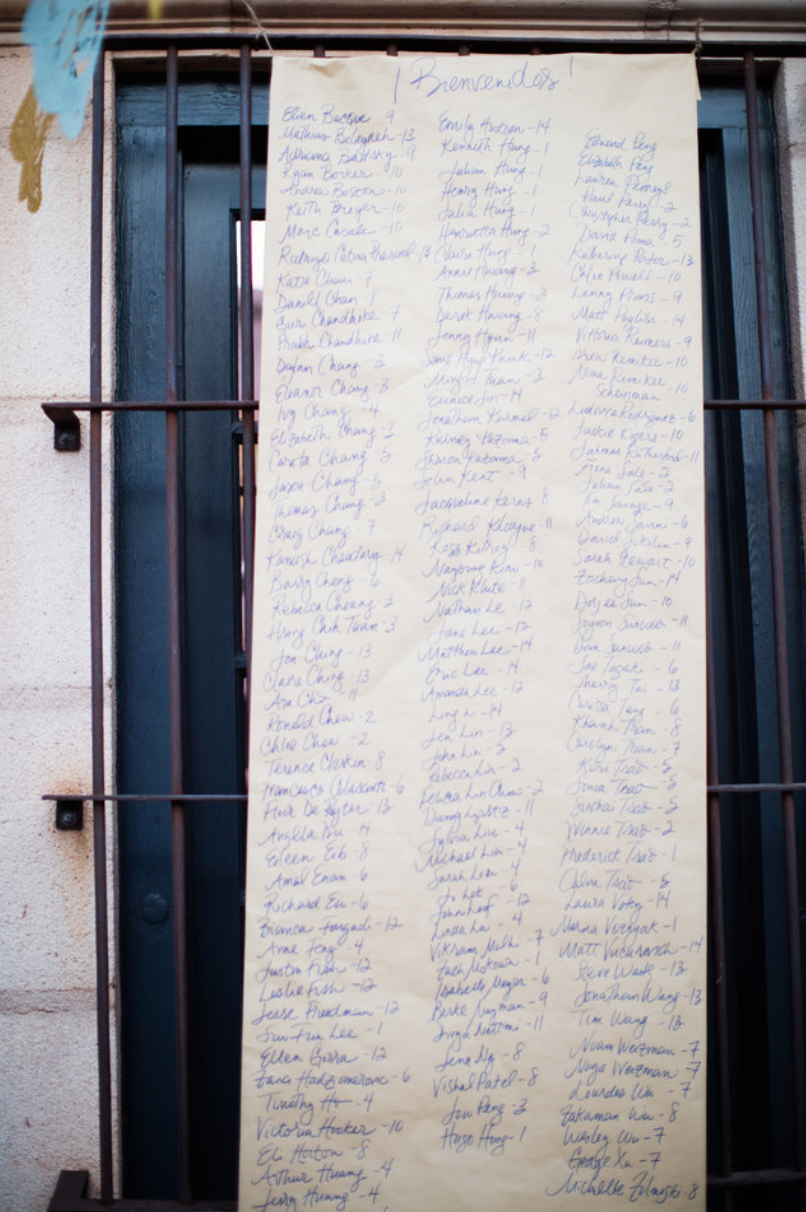 ¡Bienvenidos!
Ellen Bacon 9
Mathius -13
Adriana -9
Ryan Borker -10
Andrew Bostons -10
Keith Breyer -10
Marc Casale -10
Rodrigo
Katie Chan -7
Daniel Chan 8
Chandhoke - 7
Prabh Chandhoke - 11
Dylan Chang - 3
Eleanor Chang - 3
Ivy Chang - 4
Elizabeth Chang - 3
Chang - 5
Jason Chang - 5
Thomas Chang - 3
Craig Chang - 7
Kamish Chaudary - 14
Barry Cheng - 6
Rebecca Cheung - 3
Hsing Chih Tuan - 3
Jon Ching - 13
Claire Ching - 13
Ara Cho - 11
Ronald Chow - 2
Chloe Chow - 2
Terence Clerkin - 8
Francesco Colasanti - 6
De - 13
Angela Du - 14
Eileen Eib - 8
Amal Enam - 6
Richard Eu - 6
Bianca Forzadi - 12
Anne Feng - 4
Justin Fish - 12
Leslie Fish - 12
Jesse Freedman - 12
Sun Fun Lee - 1
Ellen Gorra - 12
Hadzomerovic - 6
Timothy Ho - 4
Victoria Hooker - 10
Eli Horton - 8
Arthur Huang - 4
Jenny Huang - 4
Emily Hudson - 14
Kenneth Hung - 1
Julian Hung - 1
Henry Hung - 1
Julia Hung - 1
Henrietta Hung - 2
Claire Hung - 1
Annie Hwang - 3
Thomas Hwang - 3
Derek Hwang - 8
Jenny Hyun - 11
Sang Hyup Kwak - 12
Ming I Tuan - 3
Eunice Jin - 14
Jonathan Karmel - 12
Kidney Kazama - 5
Sharon Kazama - 5
John Kent - 9
Jacqueline Kerns 8
Richard - 11
Ross Kilroy - 8
Kim - 10
Nick Klute - 11
Nathan Le - 12
Jane Lee - 12
Matthew Lee - 14
Eric Lee - 14
Amanda Lee - 12
Ling Li - 14
Jen Lin - 13
John Lin - 5
Rebecca Lin - 2
Felicia Lin - 2
Danny - 11
Sylvia Liu - 4
Michael Liu - 4
Sarah Liu - 4
Jo Lok - 6
John - 12
Linda Lu - 4
Vikram Malhi - 7
Zach McKown - 1
Isabelle Meyer - 6
Berke Nuzman - 9
Divya Natomi - 11
Jena Ng - 8
Vishal Patel - 8
Jow Peng - 3
Hugo Hung - 1
Edward Peng
Elizabeth Peng
Lauren
Paul Perry - 2
Christopher Perry - 2
David Poma - 5
Katherine Porter - 13
Chloe Powell - 10
Lenny Pruss - 9
Matt Puglisi - 14
Vittoria Reimers - 9
Drew Remiker - 10
Nina Remiker - 10
Scheinman
Ludovica Rodriguez - 6
Jackie Rogers - 10
Jahmar Rutherford - 11
Anna Sale - 2
Julian Sale - 2
Savage - 9
Andrea Savini - 6
David Sikelin - 9
Sarah Stewart - 10
Zachary Sun - 14
Dorjee Sun - 10
Sunwoo - 11
Dom Sunwoo - 11
Sae Tagaki - 6
Sherry Tai - 13
Carissa Teng - 6
Khanh Tran - 8
Carolyn Tran - 7
Kiri Tsao - 5
Sonia Tsao - 5
Tsao - 5
Winnie Tsao - 2
Frederick Tsao - 1
Calvin Tsao - 5
Laura Voty - 14
Marina Voznyak - 1
Matt Vucurovich - 14
Steve Wade - 13
Jonathan Wang - 13
Tim Wang - 13
Noam Weizman - 7
Noga Weizman - 7
Lourdes Wu - 7
Zakaman Wu - 8
Wesley Wu - 7
George Xu - 7
Michelle Zelnosk - 8